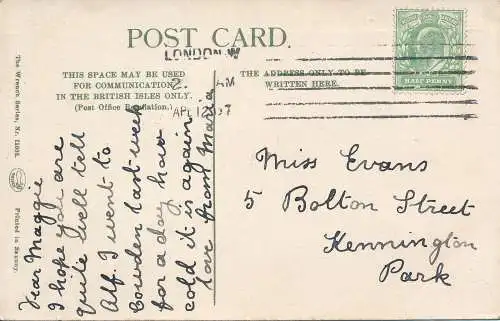 POST CARD.
LONDON. W
THIS SPACE MAY BE USED
FOR COMMUNICATION
IN THE BRITISH ISLES ONLY.
(Post Office Regulation.)
THE ADDRESS ONLY TO BE
WRITTEN HERE.
HALF PENNY
The Wrench Series, No.
Printed in Saxony.
Dear Maggie
I hope you are
quite well tell
Alf. I went to
Cowden last week
for a day how
cold it is again
love from Maria
Miss Evans
5 Bolton Street
Kennington
Park